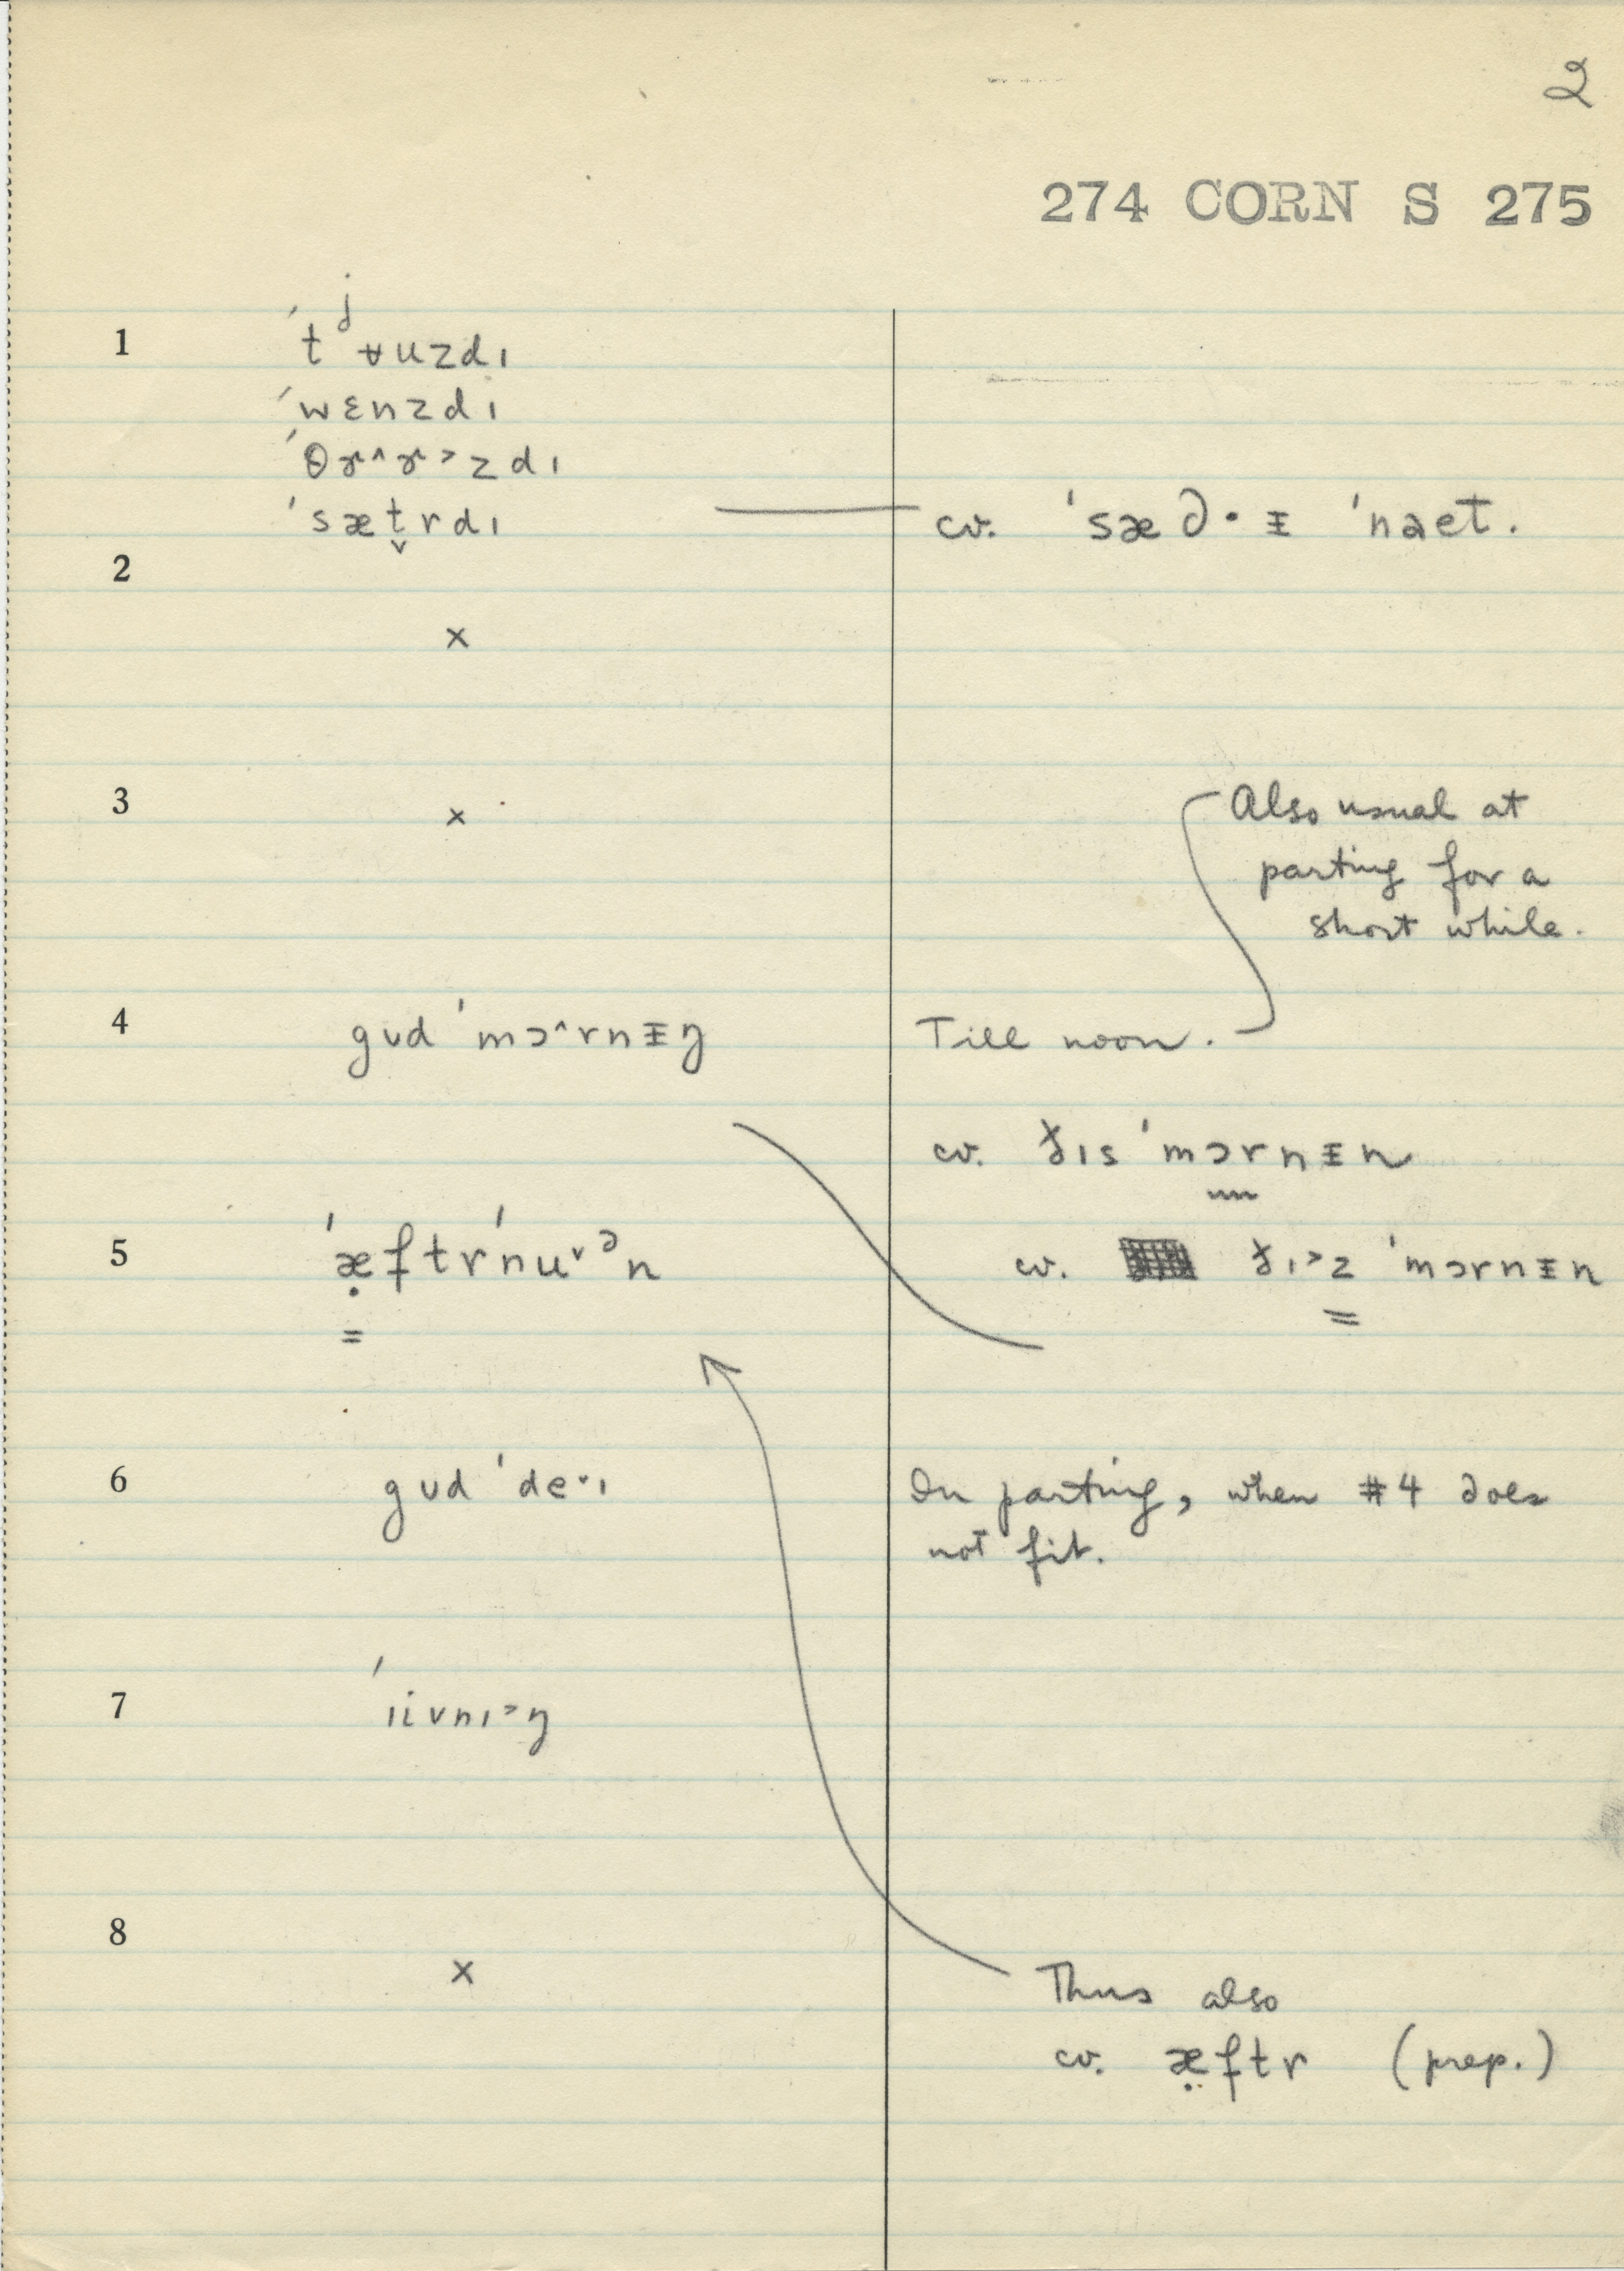 2
274 CORN S 275
1 ˈtʲʉuzdɪ
ˈwɛnzdɪ
ˈθɚ^ɚ˃zdɪ
ˈsæt̬rdɪ
cv. ˈsæ∂·ᵻ ˈnaet.
2
×
3 ×
Also usual at
parting for a
short while.
4 gʊd ˈmɔ^rnᵻŋ
Till noon.
cv. ðɪs ˈmɔrnᵻn
5 ˈæ̣ftrˈnu˅ᵊn
cv. ðɪ˃z ˈmɔrnᵻn
6 gʊd ˈde˅ɪ
In parting, when #4 does
not fit.
7 ˈɪivnɪ˃ŋ
8 ×
Thus also
cv. æ̤ftr (prep.)